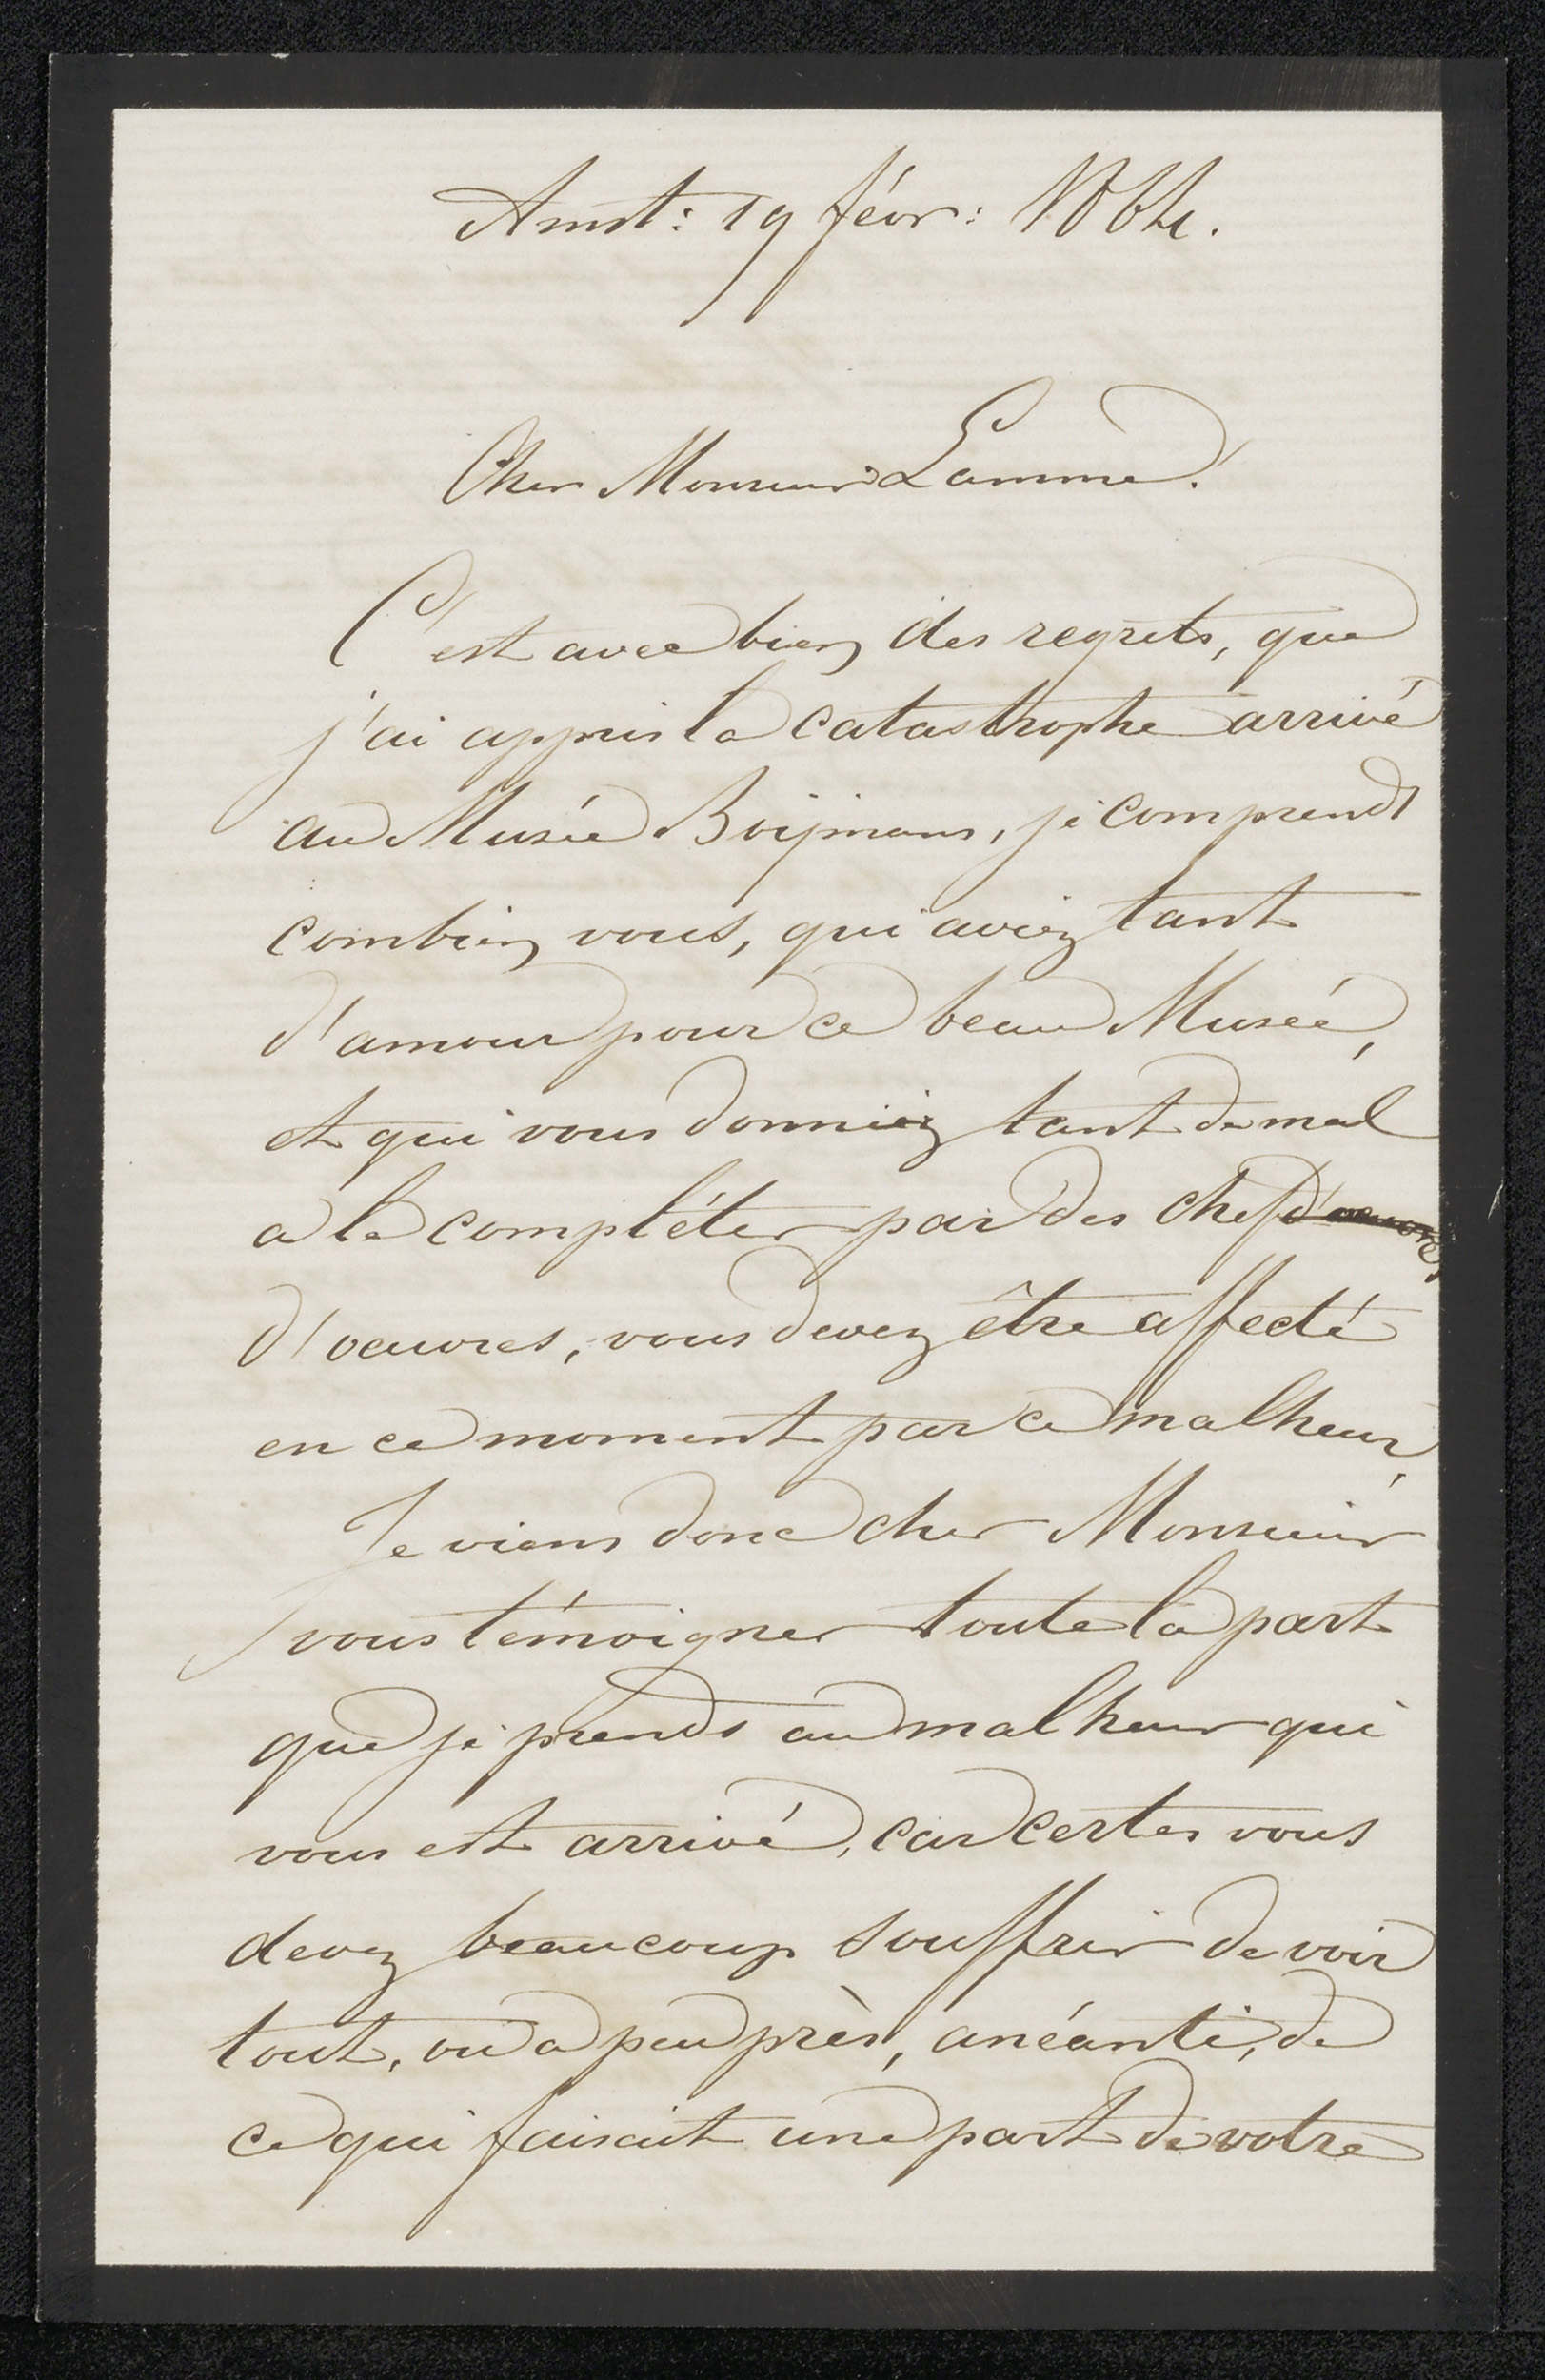 Amst: 19 févr: 1864.
Cher Monsieur Lamme!
C'est avec bien des regrets, que
j'ai appris la catastrophe arrivé
au Musée Boijmans, je comprends
combien vous, qui aviez tant
d'amour pour ce beau Musée,
et qui vous donniez tant de mal
a le compléter par des chefs d'oeuvres,
d'oeuvres, vous devez être affecté
en ce moment par ce malheur,
Je viens donc cher Monsieur
vous témoigner toute la part
que je prends au malheur qui
vous est arrivé, car certes vous
devez beaucoup souffrir de voir
tout, ou a peu près, anéanti, de
ce qui faisait une part de votre